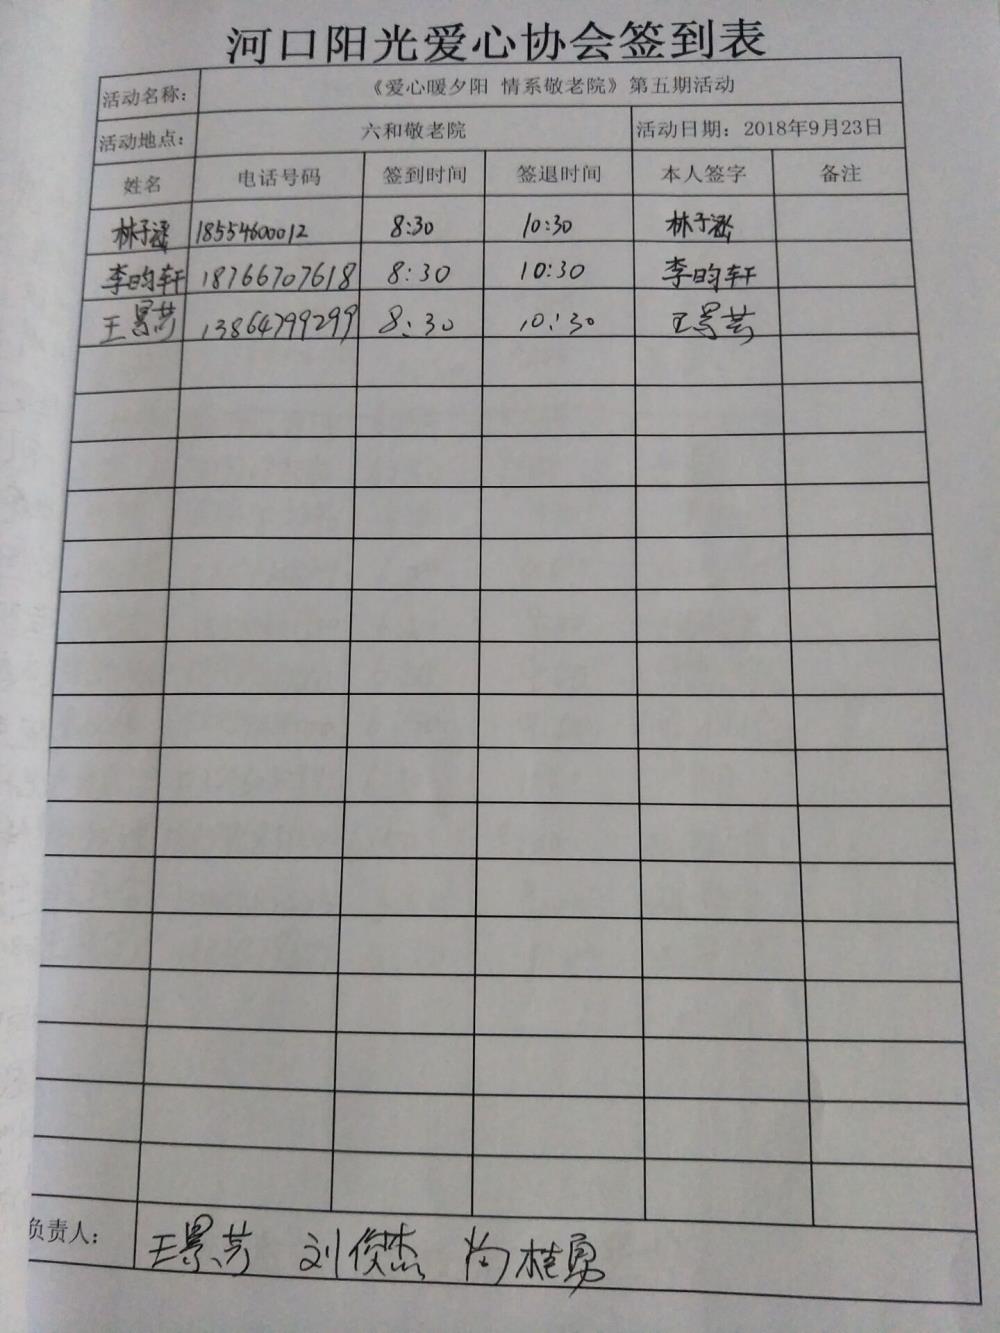 河口阳光爱心协会签到表
活动名称: 《爱心暖夕阳 情系敬老院》第五期活动
活动地点: 六和敬老院 活动日期: 2018年9月23日
姓名 电话号码 签到时间 签退时间 本人签字 备注
林子涵 18554600012 8:30 10:30 林子涵
李昀轩 18766707618 8:30 10:30 李昀轩
王景芳 13864799299 8:30 10:30 王景芳
负责人: 王景芳 刘俊杰 尚桂勇